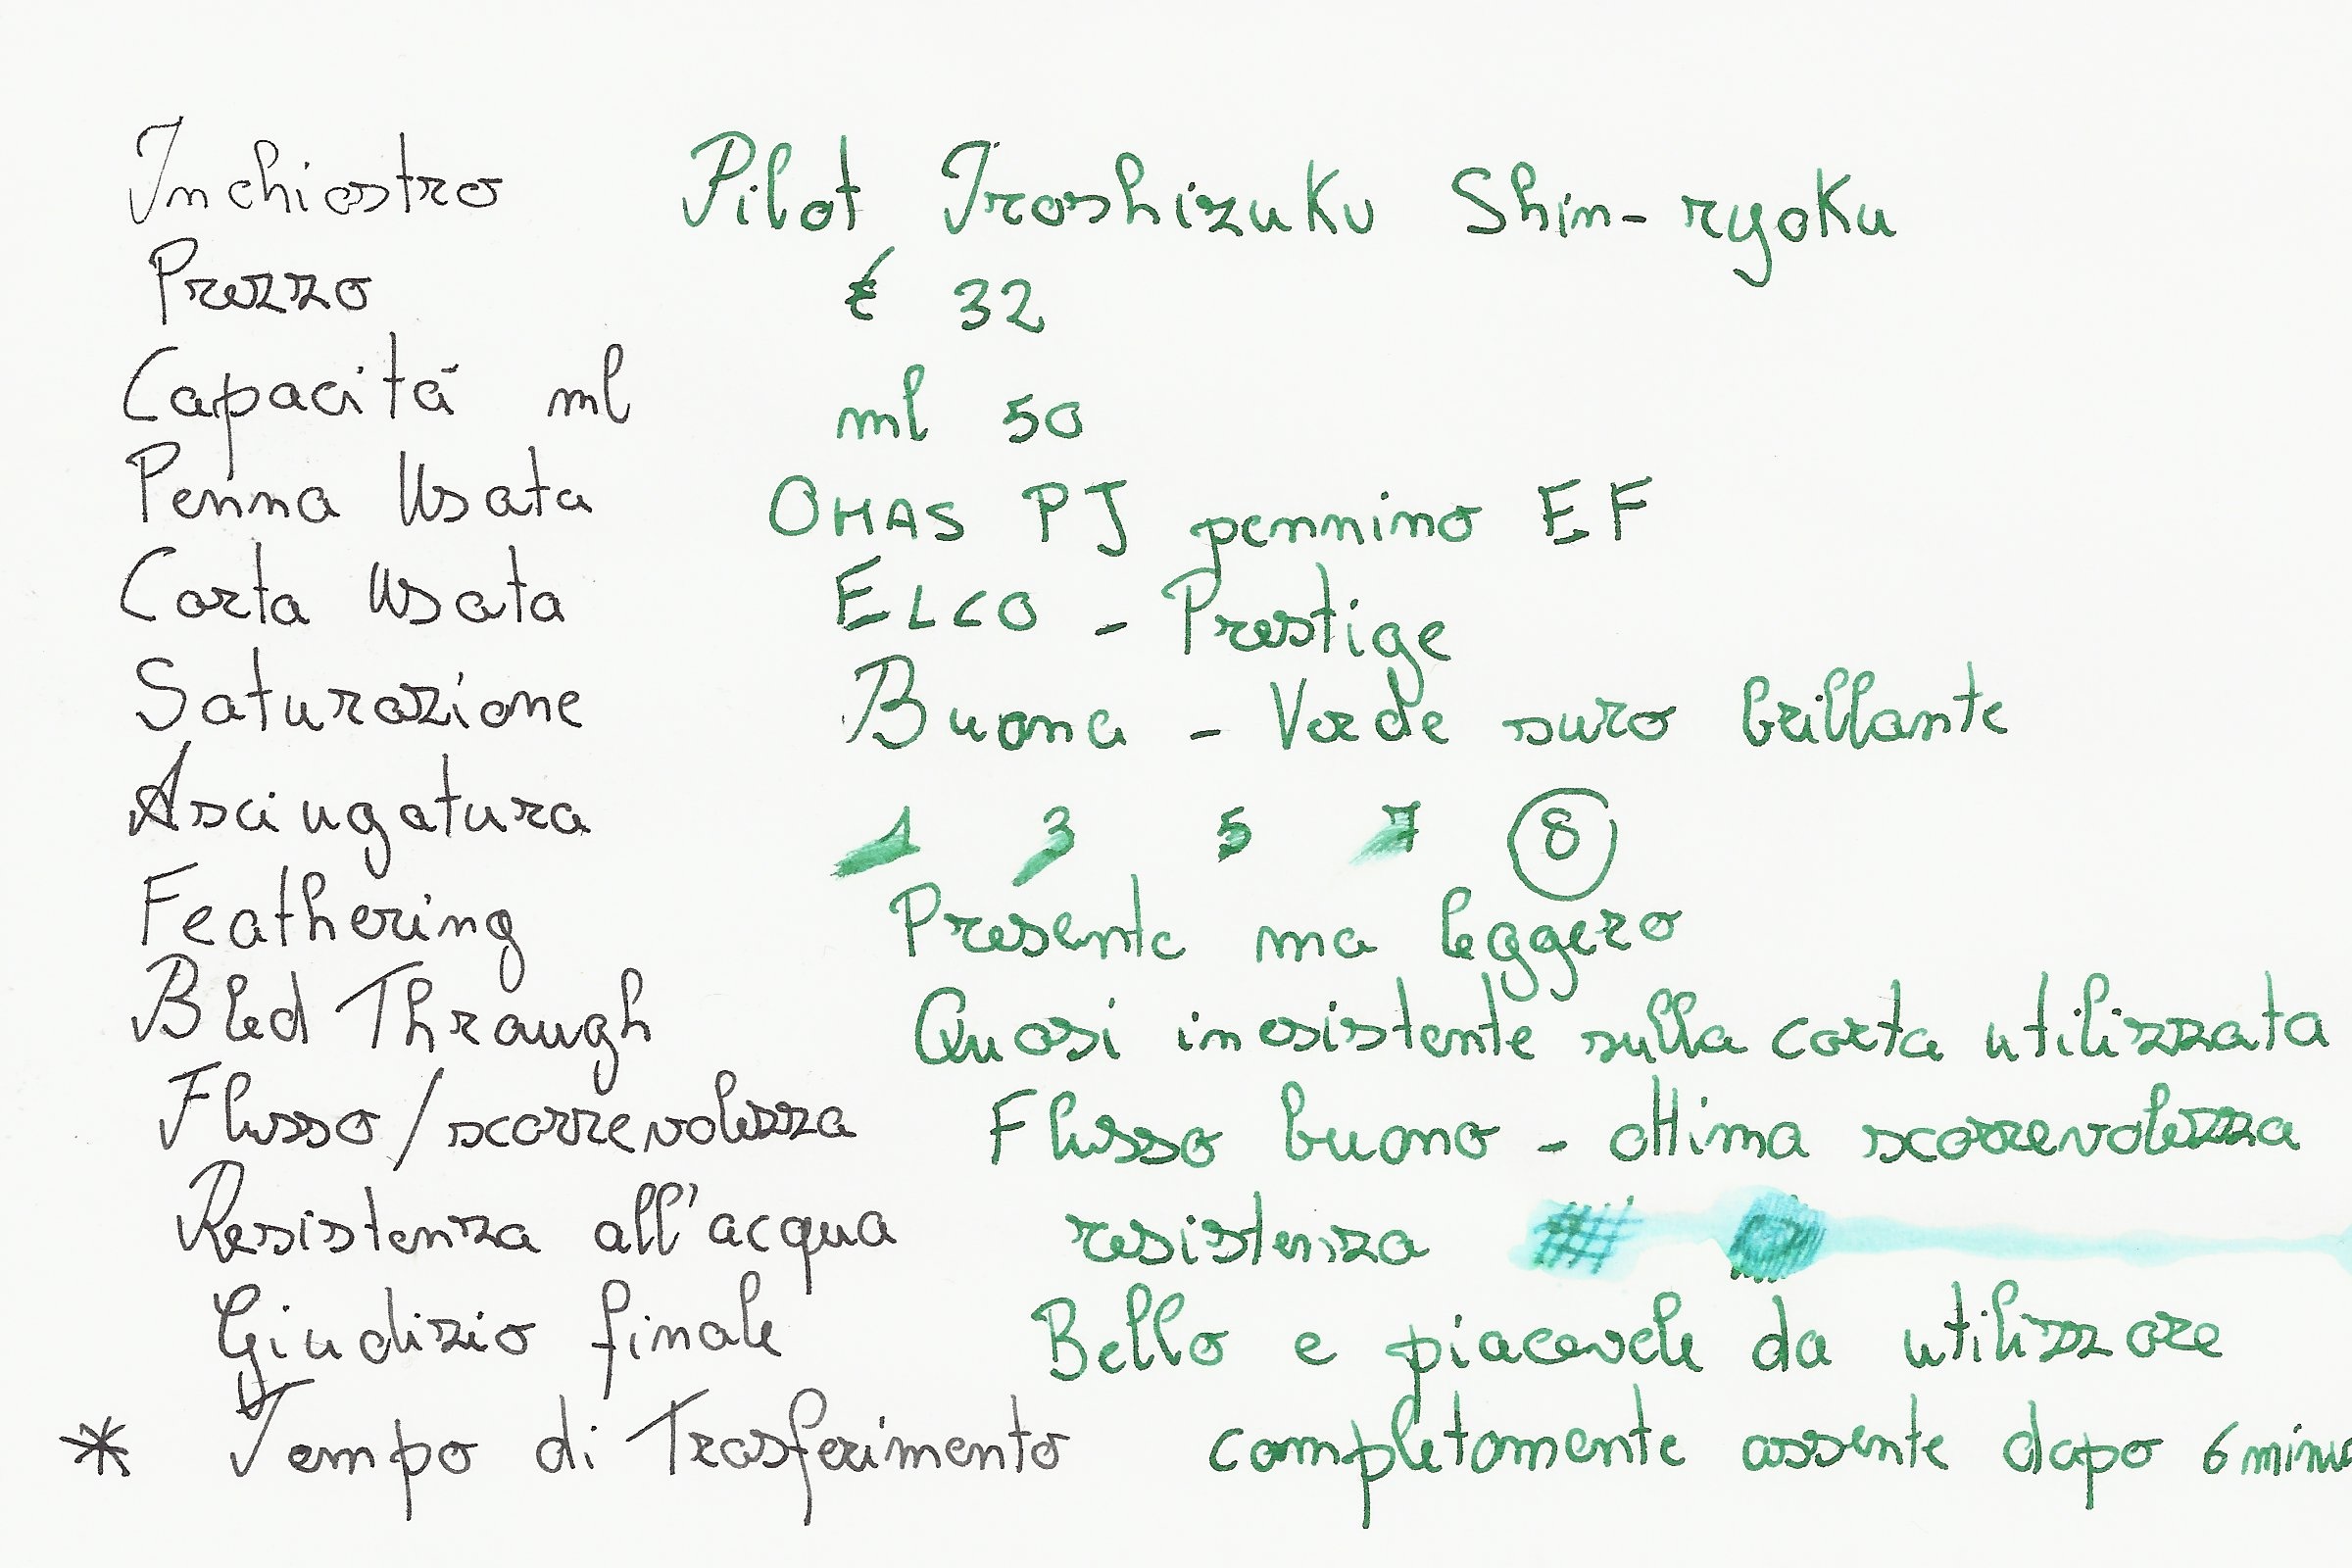 Inchiostro Pilot Iroshizuku Shin-ryoku
Prezzo € 32
Capacità ml ml 50
Penna Usata OMAS PJ pennino EF
Carta Usata ELCO - Prestige
Saturazione Buona - Verde suro brillante
Asciugatura 1 3 5 7 8
Feathering Presente ma leggero
Bled Through Quasi inesistente sulla carta utilizzata
Flusso/scorrevolezza Flusso buono - ottima scorrevolezza
Resistenza all'acqua resistenza
Giudizio finale Bello e piacevole da utilizzare
* Tempo di Trasferimento completamente assente dopo 6 minu